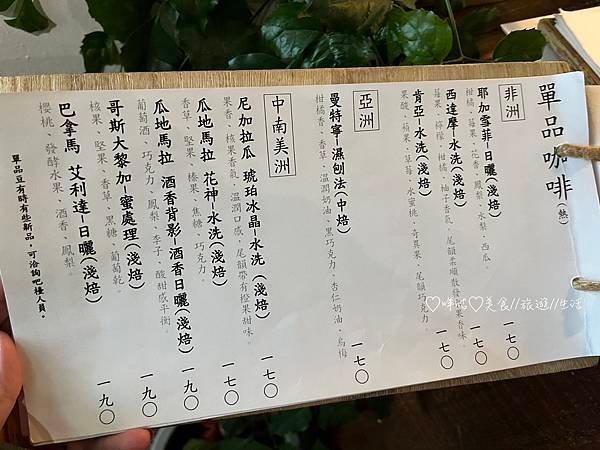 單品咖啡(熱)
非洲
耶加雪菲–日曬(淺焙) 一七〇
柑橘、莓果、花香、鳳梨、水梨、西瓜。
西達摩–水洗(淺焙) 一七〇
莓果、檸檬、柑橘、柚子香氣、尾韻柔順散發果香味。
肯亞–水洗(淺焙)
果酸、蘋果、草莓、水蜜桃、奇異果、尾韻巧克力
亞洲
曼特寧–濕刨法(中焙) 一七〇
柑橘香、香草、溫潤奶油、黑巧克力、杏仁奶油、烏梅
中南美洲
尼加拉瓜 琥珀冰晶–水洗(淺焙) 一七〇
果香、核果香氣、溫潤口感、尾韻帶有橙果甜味。
瓜地馬拉 花神–水洗(淺焙) 一七〇
香草、堅果、榛果、焦糖、巧克力。
瓜地馬拉 酒香背影–酒香日曬(淺焙) 一九〇
葡萄酒、巧克力、鳳梨、李子、酸甜感平衡。
哥斯大黎加–蜜處理(淺焙) 一九〇
核果、堅果、香草、黑糖、葡萄乾。
巴拿馬 艾利達–日曬(淺焙) 一九〇
櫻桃、發酵水果、酒香、鳳梨。
單品豆有時有些新品,可洽詢吧檯人員。
美食//旅遊//生活